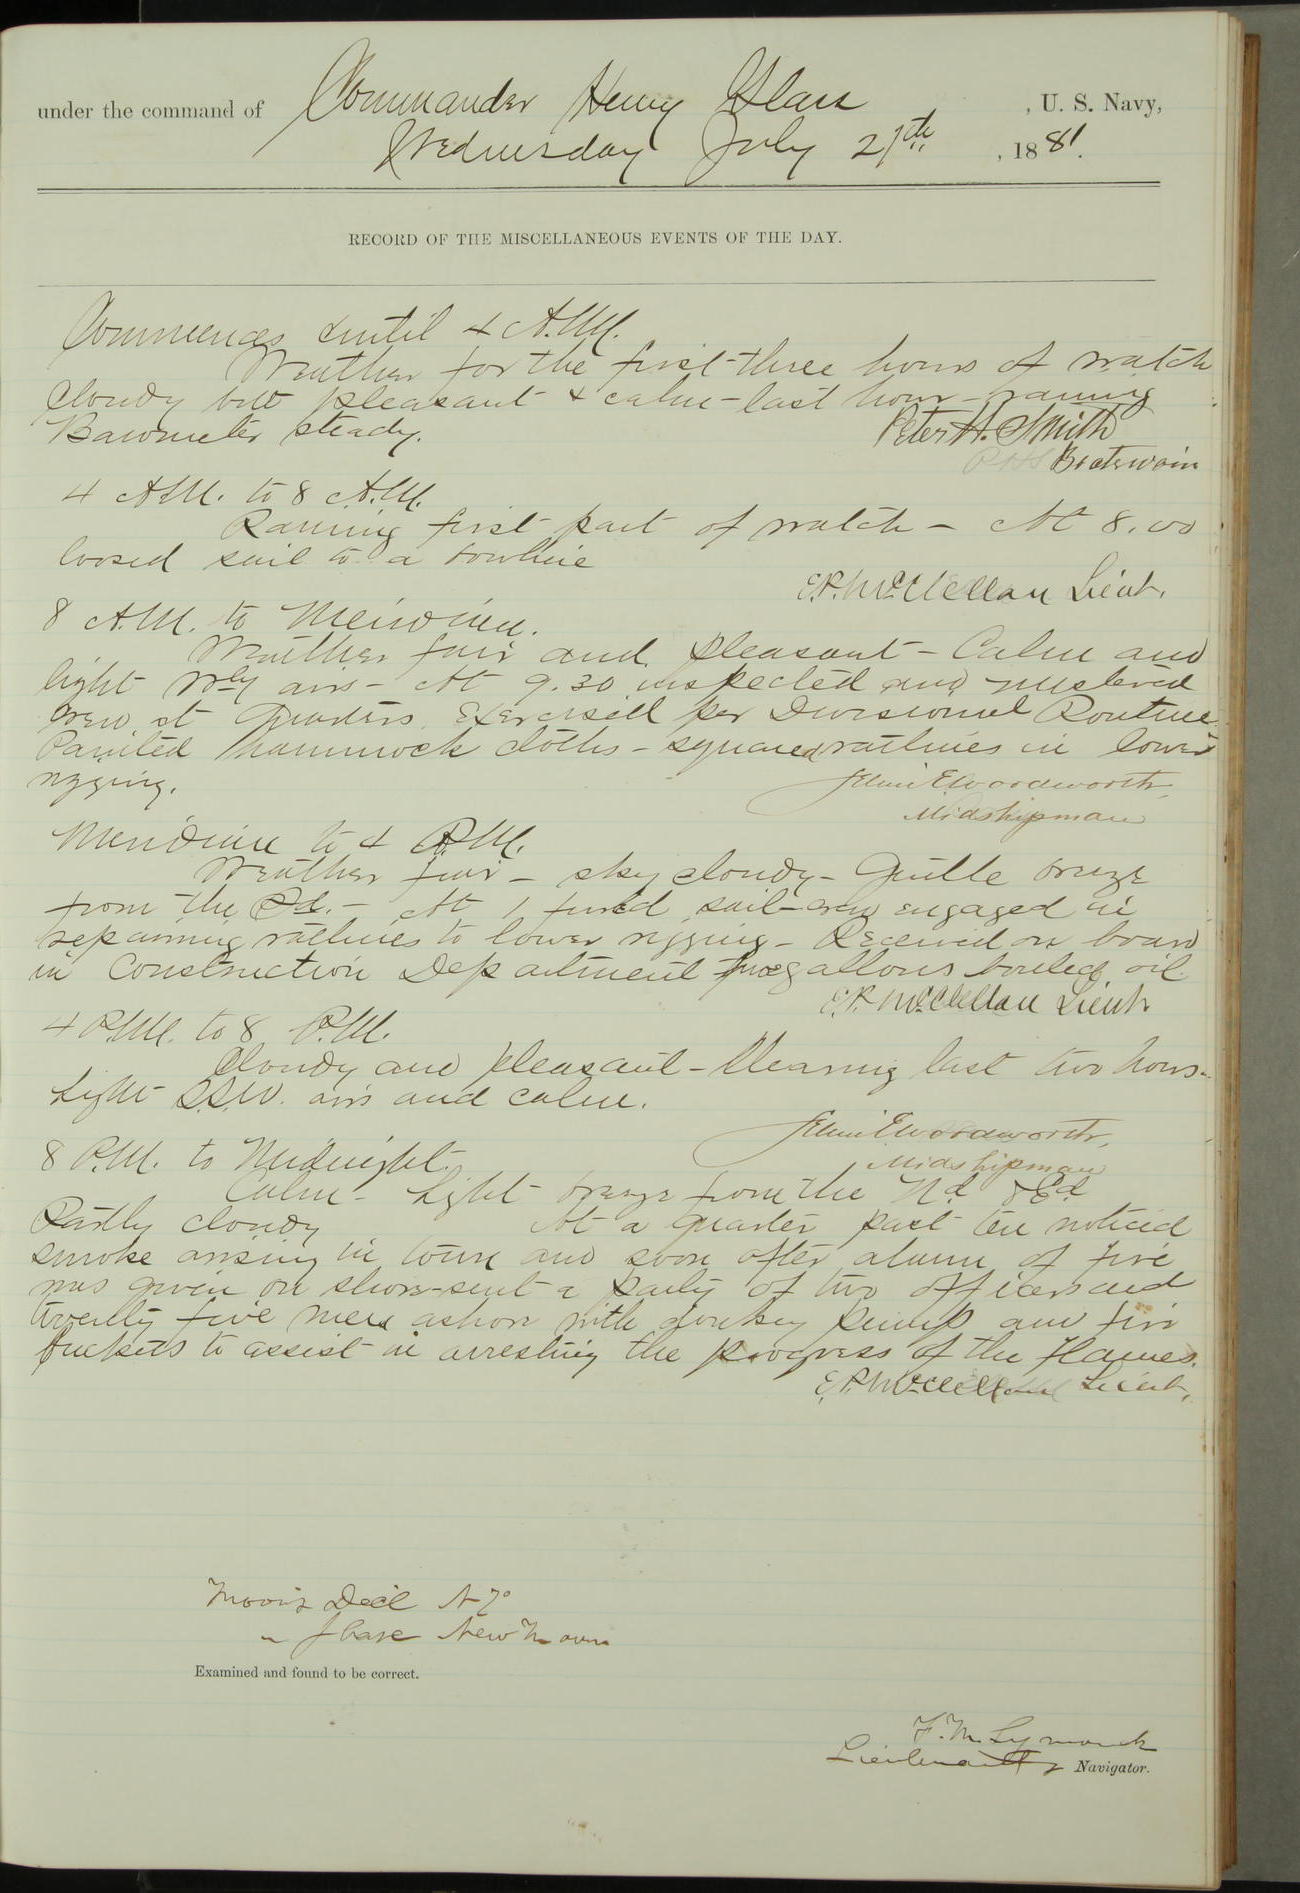 under the command of Commander Henry Glass, U. S. Navy,
Wednesday July 27th, 1881.
RECORD OF THE MISCELLANEOUS EVENTS OF THE DAY.
Commences & until 4 A.M.
Weather for the first three hours of watch
cloudy but pleasant & calm - last hour - raining
Barometer steady.
Peter H. Smith
Boatswain
4 A.M. to 8 A.M.
Raining first part of watch - At 8.00
loosed sail to a bowline
E.P. McClellan Lieut.
8 A.M. to Meridian.
Weather fair and pleasant - Calm and
light Nly airs - At 9.30 inspected and mustered
crew at Quarters. Exercised per Divisional Routine
Painted hammock cloths - squared ratlines in lower
rigging.
John E Woodworth,
Midshipman
Meridian to 4 P.M.
Weather fair - sky cloudy - Gentle breeze
from the Sd. - At 1 furled sail - crew engaged in
repairing ratlines to lower rigging - Received on board
in Construction Department five gallons boiled oil.
E.P. McClellan Lieut
4 P.M. to 8 P.M.
Cloudy and pleasant - Clearing last two hours -
Light S.S.W. airs and calm.
John E Woodworth,
Midshipman
8 P.M. to Midnight.
Calm - Light breeze from the Nd & Ed
Partly cloudy At a quarter past ten noticed
smoke arising in town and soon after alarm of fire
was given on shore - sent a party of two officers and
twenty five men ashore with donkey pump and fire
buckets to assist in arresting the progress of the flames.
E.P. McClellan Lieut.
Moon's Decl N
" phase New Moon
Examined and found to be correct.
F. M. Symonds
Lieutenant & Navigator.